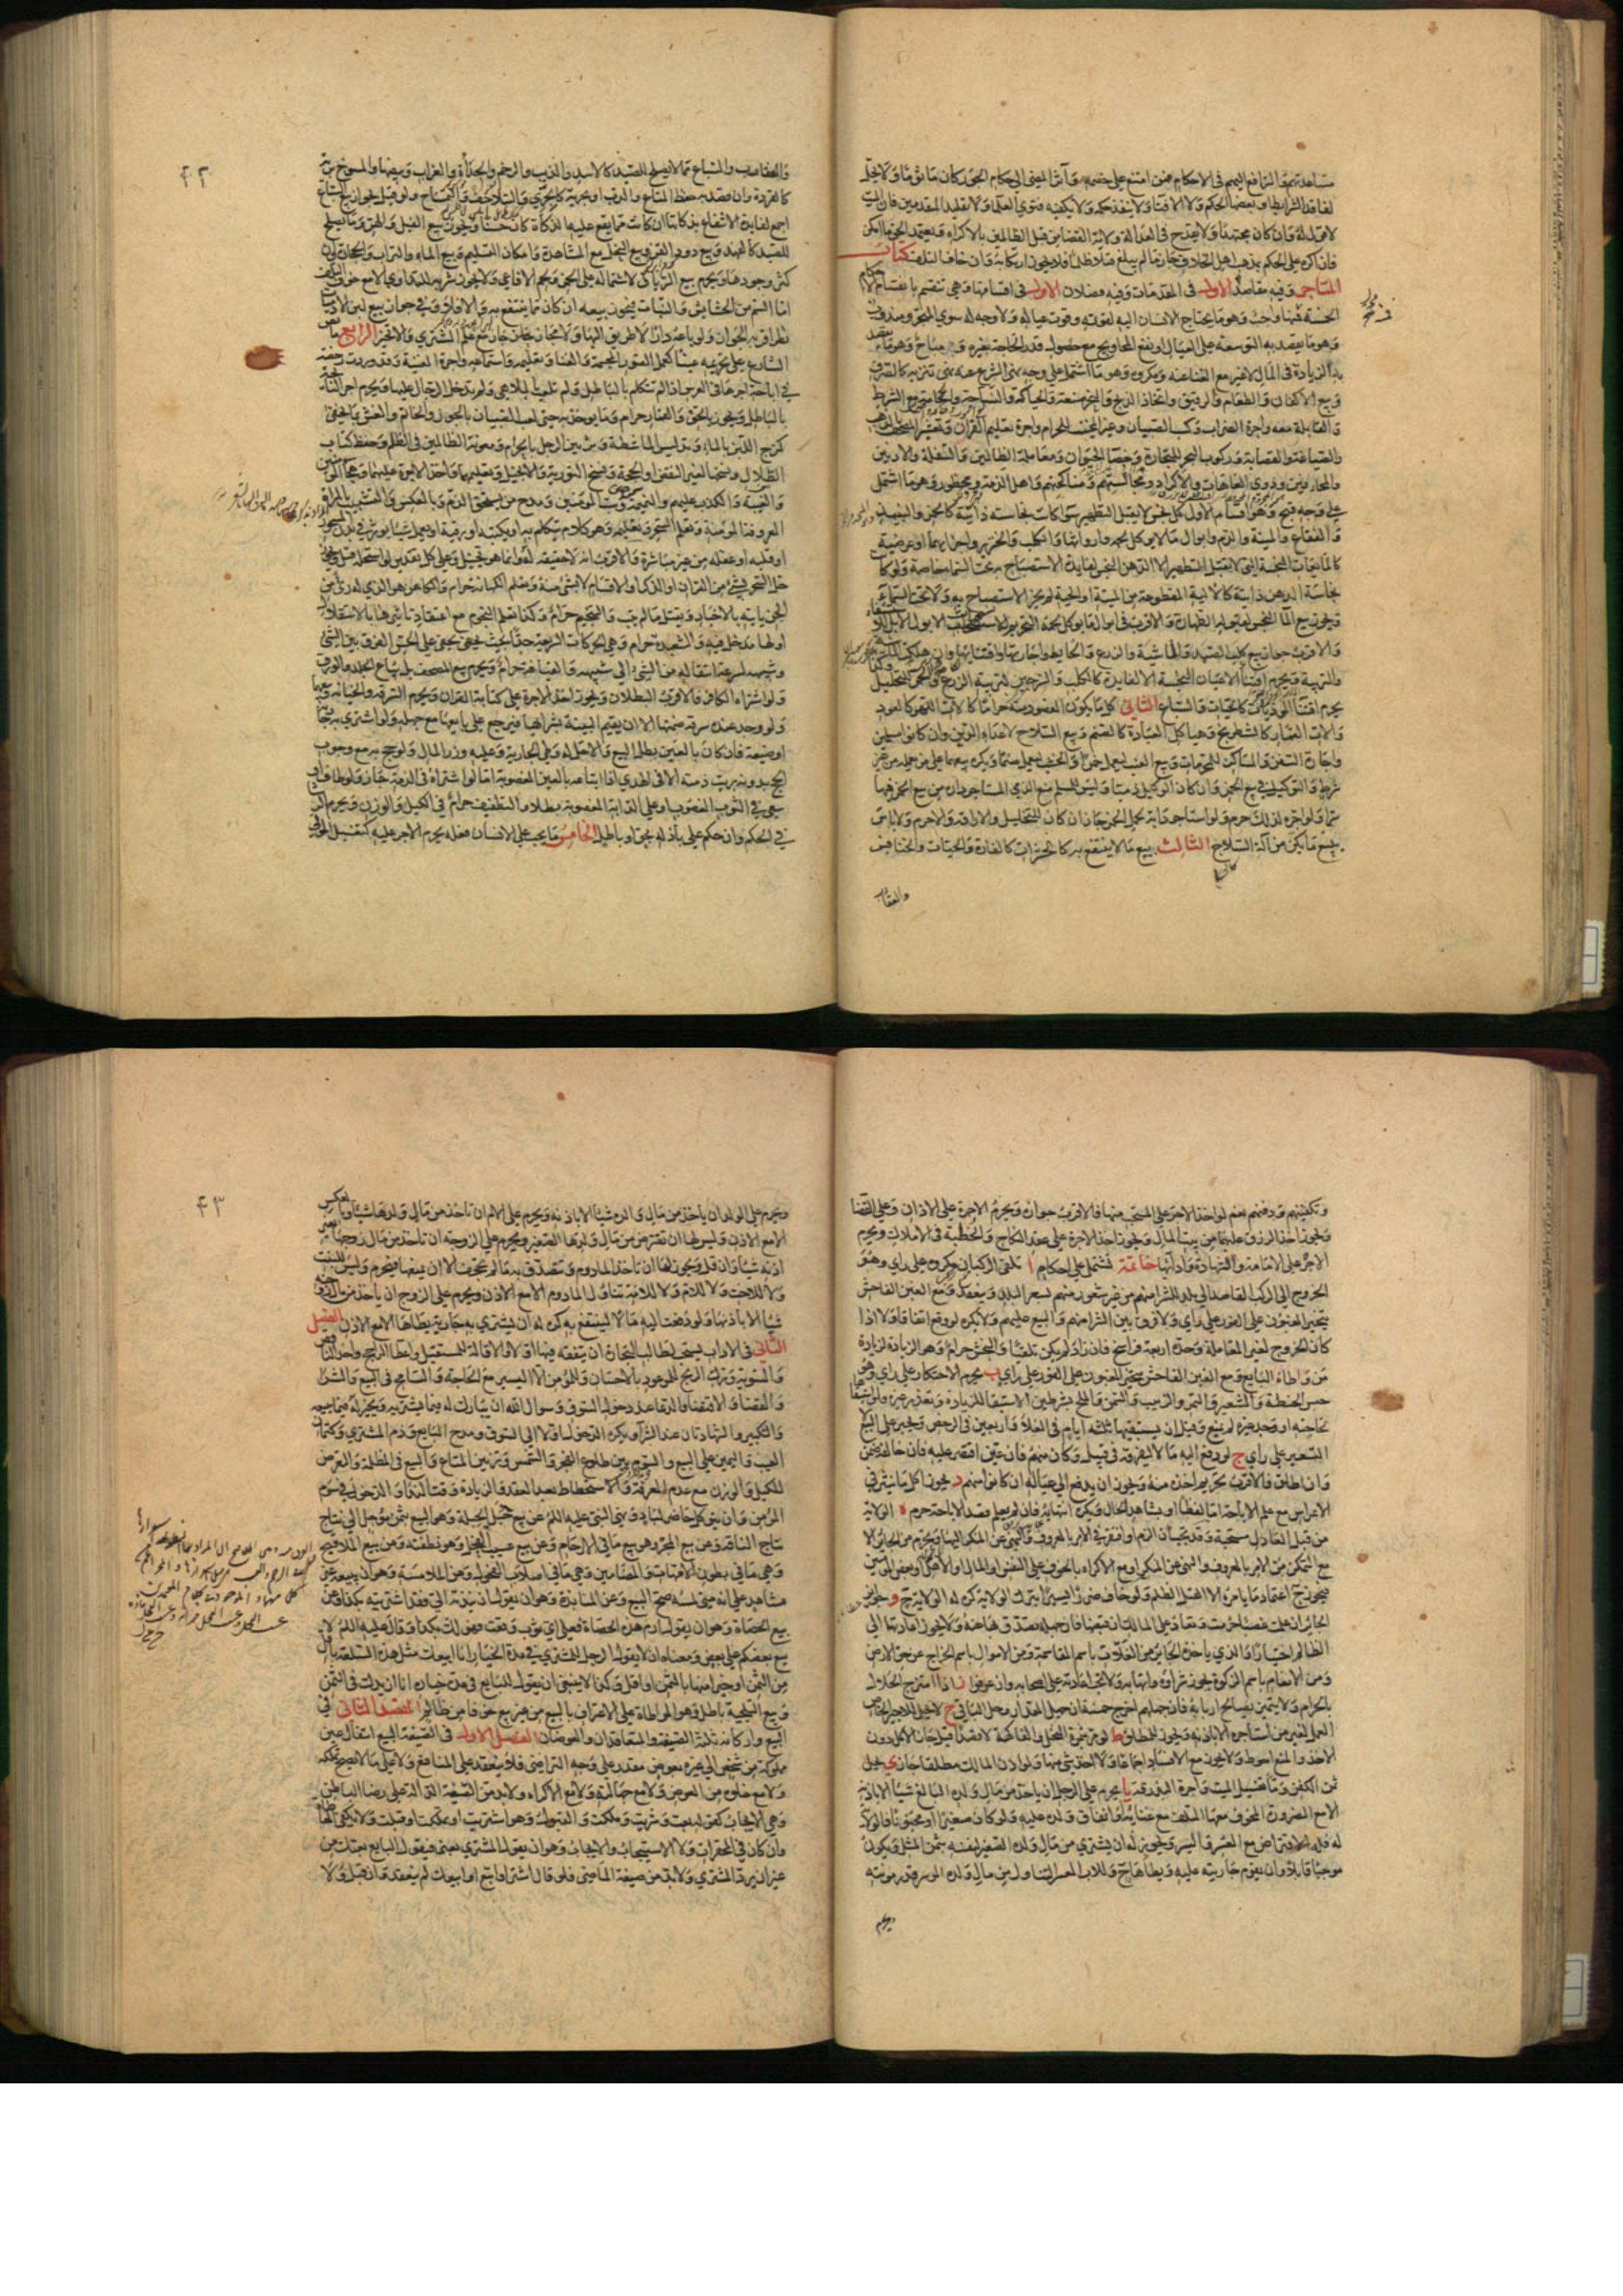 مساعدتهم والترافع اليهم في الاحكام فمن امتنع على خصمه وآثر المضي الى حكام الجور كان مأثوما ولا يحل
لفاقد الشرائط او بعضها الحكم ولا الافتاء ولا ينفذ حكمه ولا يكفيه فتوى العلماء ولا تقليد المتقدمين فان الميت
لا قول له وان كان مجتهدا ولا يقدح في العدالة ولاية القضاء من قبل الظالمين بالاكراه ويعتمد الحق ما امكن
فان اكره على الحكم بمذهب اهل الخلاف جاز ما لم يبلغ قتلا ظلما فلا يجوز ارتكابه وان خاف التلف كتاب
المتاجر وفيه مقاصد الاول في المقدمات وفيه فصلان الاول في اقسامها وهي تنقسم بانقسام الاحكام
الخمسة فمنها واجب وهو ما يحتاج الانسان اليه لقوته وقوت عياله ولا وجه له سوى المتجر ومندوب
وهو ما يقصد به التوسعة على العيال او نفع المحاويج مع حصول قدر الحاجة بغيره ومباح وهو ما يقصد
به الزيادة في المال لا غير مع الغناء عنه ومكروه وهو ما اشتمل على وجه نهى الشرع عنه نهي تنزيه كالصرف
وبيع الاكفان والطعام والرقيق واتخاذ الذبح والنحر صنعة والحياكة والنساجة والحجامة مع الشرط
والقابلة معه واجرة الضراب وكسب الصبيان ومن لا يجتنب المحارم واجرة تعليم القرآن وتعشير المصحف بالذهب
والصياغة والقصابة وركوب البحر للتجارة وخصاء الحيوان ومعاملة الظالمين والسفلة والادنين
والمحارفين وذوي العاهات والاكراد ومجالستهم ومناكحتهم واهل الذمة ومحظور وهو ما اشتمل
على وجه قبح وهو اقسام الاول كل نجس لا يقبل التطهير سواء كانت نجاسته ذاتية كالخمر والنبيذ
والفقاع والميتة والدم وابوال ما لا يؤكل لحمه وارواثها والكلب والخنزير واجزائهما او عرضية
كالمايعات النجسة التي لا تقبل التطهير الا الدهن النجس لفائدة الاستصباح به تحت السماء خاصة ولو كانت
نجاسة الدهن ذاتية كالالية المقطوعة من الميتة او الحية لم يجز الاستصباح به ولا تحت السماء
ويجوز بيع الماء النجس لقبوله الطهارة والاقرب في ابوال ما يؤكل لحمه التحريم للاستخباث الا بول الابل للاستشفاء
والاقرب جواز بيع كلب الصيد والماشية والزرع والحائط واجارتها واقتنائها وان هلكت الماشية
والتربية ويحرم اقتناء الاعيان النجسة الا لفائدة كالكلب والسرجين لتربية الزرع والخمر للتخليل وكذا
يحرم اقتناء المؤذيات كالحيات والسباع الثاني كل ما يكون المقصود منه حراما كآلات اللهو كالعود
وآلات القمار كالشطرنج وهياكل العبادة كالصنم وبيع السلاح لاعداء الدين وان كانوا مسلمين
واجارة السفن والمساكن للمحرمات وبيع العنب ليعمل خمرا والخشب ليعمل صنما ويكره بيعهما على من يعمله من غير
شرط والتوكيل في بيع الخمر وان كان الوكيل ذميا وليس للمسلم منع الذمي المستأجر داره من بيع الخمر فيها
سرا ولو آجره لذلك حرم ولو استأجر دابة لحمل الخمر جاز ان كان للتخليل والاراقة والا حرم ولا بأس
ببيع ما يكن من آلة السلاح الثالث بيع ما لا ينتفع به كالحشرات كالفارة والحيات والخنافس
والعقارب
٤٢
والعقارب والسباع مما لا يصلح للصيد كالاسد والذئب والرخم والحدأة والغراب وبيضها والمسوخ برية
كالقردة وان قصد به حفظ المتاع والدب او بحرية كالجري والسلاحف والتمساح ولو قيل بجواز بيع السباع
اجمع لفائدة الانتفاع بذكاتها ان كانت مما يقع عليه الذكاة كان حسنا ويجوز بيع الفيل والهر وما يصلح
للصيد كالفهد وبيع دود القز وبيع النحل مع المشاهدة وامكان التسليم وبيع الماء والتراب والحجارة وان
كثر وجودها ويحرم بيع الترياق لاشتماله على الخمر ولحم الافاعي ولا يجوز شربه للتداوي الا مع خوف التلف
اما السم من الحشائش والنبات فيجوز بيعه ان كان مما ينتفع به والا فلا وفي جواز بيع لبن الآدميات
نظر اقربه الجواز ولو باعه دارا لا طريق اليها ولا مجاز جاز مع علم المشتري والا تخير الرابع ما نص
الشارع على تحريمه عينا كعمل الصور المجسمة والغناء وتعليمه واستماعه واجرة المغنية وقد وردت رخصة
في اباحة اجرها في العرس اذا لم تتكلم بالباطل ولم تلعب بالملاهي ولم يدخل الرجال عليها ويحرم اجر النائحة
بالباطل ويجوز بالحق والقمار حرام وما يؤخذ به حتى لعب الصبيان بالجوز والخاتم والغش بما يخفى
كمزج اللبن بالماء وتدليس الماشطة وتزيين الرجل بالحرام ومعونة الظالمين في الظلم وحفظ كتب
الضلال ونسخها لغير النقض او الحجة ونسخ التورية والانجيل وتعليمهما واخذ الاجرة عليهما وهجاء المؤمنين
والغيبة والكذب عليهم والنميمة وسب المؤمنين ومدح من يستحق الذم وبالعكس والتشبيب بالمرأة
المعروفة المؤمنة وتعلم السحر وتعليمه وهو كلام يتكلم به او يكتبه او رقية او يعمل شيئا يؤثر في بدن المسحور
او قلبه او عقله من غير مباشرة والاقرب انه لا حقيقة له وانما هو تخييل وعلى كل تقدير لو استحله قتل ويجوز
حل السحر بشيء من القرآن او الذكر او الاقسام لا بشيء منه وتعلم الكهانة حرام والكاهن هو الذي له رئي من
الجن يأتيه بالاخبار ويقتل ما لم يتب والتنجيم حرام وكذا تعلم النجوم مع اعتقاد تأثيرها بالاستقلال
او لها مدخل فيه والشعبذة حرام وهي الحركات السريعة جدا بحيث يخفى على الحس الفرق بين الشيء
وشبهه لسرعة انتقاله من الشيء الى شبهه والقيافة حرام ويحرم بيع المصحف بل يباع الجلد والورق
ولو اشتراه الكافر فالاقرب البطلان ويجوز اخذ الاجرة على كتابة القرآن ويحرم السرقة والخيانة وبيعهما
ولو وجد عنده سرقة ضمنها الا ان يقيم البينة بشرائها فيرجع على بائعها مع جهله ولو اشترى به جارية
او ضيعة فان كان بالعين بطل البيع والا حل له وطي الجارية وعليه وزر المال ولو حج به مع وجوب
الحج بدونه برئت ذمته الا في الهدي اذا ابتاعه بالعين المغصوبة اما لو اشتراه في الذمة جاز ولو طاف او
سعى في الثوب المغصوب او على الدابة المغصوبة بطلا والتطفيف حرام في الكيل والوزن ويحرم الرشا
في الحكم وان حكم على باذله بحق او باطل الخامس ما يجب على الانسان فعله يحرم الاجر عليه كتغسيل الموتى
وتكفينهم ودفنهم نعم لو اخذ الاجر على المستحب منها فالاقرب جوازه ويحرم الاجرة على الاذان وعلى القضاء
ويجوز اخذ الرزق عليهما من بيت المال ويجوز اخذ الاجرة على عقد النكاح والخطبة في الاملاك ويحرم
الاجر على الامامة والشهادة وادائها خاتمة تشتمل على احكام ا تلقي الركبان مكروه على رأي وهو
الخروج الى الركب القاصد الى بلد للشراء منهم من غير شعور منهم بسعر البلد وينعقد ومع الغبن الفاحش
يتخير المغبون على الفور على رأي ولا فرق بين الشراء منهم والبيع عليهم ولا يكره لو وقع اتفاقا ولا اذا
كان الخروج لغير المعاملة وحده اربعة فراسخ فان زاد لم يكن تلقيا والنجش حرام وهو الزيادة لزيادة
من واطاه البايع ومع الغبن الفاحش يتخير المغبون على الفور على رأي ب يحرم الاحتكار على رأي وهو
حبس الحنطة والشعير والتمر والزبيب والسمن والملح بشرطين الاستبقاء للزيادة وتعذر غيره ولو استبقاها
لحاجته او وجد غيره لم يمنع وقيل ان يستبقيها ثلثة ايام في الغلاء واربعين في الرخص ويجبر على البيع لا
التسعير على رأي ج لو دفع اليه ما لا ليفرقه في قبيل وكان منهم فان عين اقتصر عليه فان خالف ضمن
وان اطلق فالاقرب تحريم اخذه منه ويجوز ان يدفع الى عياله ان كانوا منهم د يجوز اكل ما ينثر في
الاعراس مع علم الاباحة اما لفظا او بشاهد الحال ويكره انتهابه فان لم يعلم قصد الاباحة حرم ه الولاية
من قبل العادل مستحبة وقد تجب ان الزم او افتقر في الامر بالمعروف والنهي عن المنكر اليها ويحرم من الجائر الا
مع التمكن من الامر بالمعروف والنهي عن المنكر او مع الاكراه بالخوف على النفس او المال او الاهل او بعض المؤمنين
فيجوز ح اعتماد ما يأمره الا القتل الظلم ولو خاف ضررا يسيرا بترك الولاية كره له الولاية ح و جوائز
الجائر ان علمت غصبا حرمت وتعاد على المالك ان قبضها فان جهله تصدق بها عنه ولا يجوز اعادتها الى
الظالم اختيارا والذي يأخذه الجائر من الغلات باسم المقاسمة ومن الاموال باسم الخراج عن حق الارض
ومن الانعام باسم الزكوة يجوز شراؤه واتهابه ولا تجب اعادته على اصحابه وان عرفوا ز اذا امتزج الحلال
بالحرام ولا يتميز يصالح اربابه فان جهلهم اخرج خمسه ان جهل المقدار وحل الباقي ح لا يحل للاجير الخاص
العمل لغير من استأجره الا باذنه ويجوز للمطلق ط لو مر بثمرة النخل والفاكهة لا قصدا قيل جاز الاكل دون
الاخذ والمنع احوط ولا يجوز مع الافساد اجماعا ولا اخذ شيء منها ولو اذن المالك مطلقا جاز ي يحل
ثمن الكفن وماء تغسيل الميت واجرة البدرقة يا يحرم على الرجل ان يأخذ من مال ولده البالغ شيئا الا باذنه
الا مع الضرورة المخوف معها التلف مع غنائه او انفاق ولده عليه ولو كان صغيرا او مجنونا فالولاية
له فله الاقتراض مع العسر واليسر ويجوز له ان يشتري من مال ولده الصغير لنفسه بثمن المثل ويكون
موجبا قابلا وان يقوم جاريته عليه ويطأها ح وللاب المعسر التناول من مال ولده الموسر قدر مؤنته
ويحرم
٤٣
ويحرم على الولد ان يأخذ من مال والده شيئا الا باذنه ويحرم على الام ان تأخذ من مال ولدها شيئا وبالعكس
الا مع الاذن وليس لها ان تقترض من مال ولدها الصغير ويحرم على الزوجة ان تأخذ من مال زوجها بغير
اذنه شيئا وان قل ويجوز لها ان تأخذ المأدوم وتتصدق به ما لم يجحف الا ان يمنعها فيحرم وليس للبنت
ولا للاخت ولا للام ولا للامة تناول المأدوم الا مع الاذن ويحرم على الزوج ان يأخذ من مال زوجته
شيئا الا باذنها ولو دفعت اليه ما لا لينتفع به كره له ان يشتري به جارية يطأها الا مع الاذن الفصل
الثاني في الآداب يستحب لطالب التجارة ان يتفقه فيها اولا والاقالة للمستقيل واعطاء الراجح واخذ الناقص
والتسوية وترك الربح للموعود بالاحسان وللمؤمن الا اليسير مع الحاجة والتسامح في البيع والشراء
والقضاء والاقتضاء والدعاء عند دخول السوق وسؤال الله ان يبارك له فيما يشتريه ويخير له فيما يبيعه
والتكبير والشهادتان عند الشراء ويكره الدخول اولا الى السوق ومدح البايع وذم المشتري وكتمان
العيب واليمين على البيع والسوم بين طلوع الفجر والشمس وتزيين المتاع والبيع في المظلمة والتعرض
للكيل والوزن مع عدم المعرفة والاستحطاط بعد العقد والزيادة وقت النداء والدخول في سوم
المؤمن وان يتوكل حاضر لباد ونهى النبي عليه السلم عن بيع حبل الحبلة وهو البيع بثمن مؤجل الى نتاج
نتاج الناقة وعن بيع المجر وهو بيع ما في الارحام وعن بيع عسيب الفحل وهو نطفته وعن بيع الملاقيح
وهي ما في بطون الامهات والمضامين وهي ما في اصلاب الفحول وعن الملامسة وهو ان يبيعه غير
مشاهد على انه متى لمسه صح البيع وعن المنابذة وهو ان يقول ان نبذته الي فقد اشتريته بكذا وعن
بيع الحصاة وهو ان يقول ارم هذه الحصاة فعلى اي ثوب وقعت فهو لك بكذا وقال عليه السلم لا
يبع بعضكم على بعض ومعناه ان لا يقول الرجل للمشتري في مدة الخيار انا ابيعك مثل هذه السلعة باقل
من الثمن او خيرا منها بالثمن او اقل وكذا لا ينبغي ان يقول للبايع في مدة خياره انا ازيدك في الثمن
وبيع التلجية باطل وهو المواطاة على الاعتراف بالبيع من غير بيع خوفا من ظالم المقصد الثاني في
البيع واركانه ثلثة الصيغة والمتعاقدان والعوضان الفصل الاول في الصيغة البيع انتقال عين
مملوكة من شخص الى غيره بعوض مقدر على وجه التراضي فلا ينعقد على المنافع ولا على ما لا يصح تملكه
ولا مع خلوه من العوض ولا مع جهالته ولا مع الاكراه ولا بد من الصيغة الدالة على رضا الباطن
وهي الايجاب كقوله بعت وشريت وملكت والقبول وهو اشتريت او تملكت او قبلت ولا تكفي المعاطاة
وان كان في المحقرات ولا الاستيجاب والايجاب وهو ان يقول المشتري بعني فيقول البايع بعتك من
غير ان يرد المشتري ولا بد من صيغة الماضي فلو قال اشتر او ابتع او ابيعك لم ينعقد وان قبل ولا